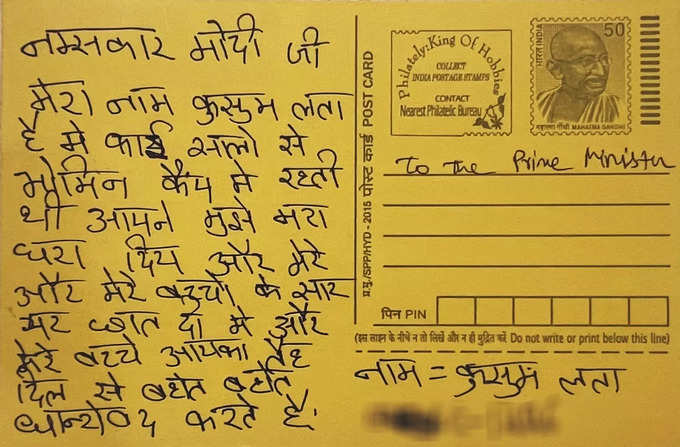 नमसकार मोदी जी
मेरा नाम कुसुम लता
है मे काई सालो से
मोमिन कैंप मे रहती
थी आपने मुझे मरा
घरा दिय और मेरे
और मेरे बच्चो के सार
पर छात दी मे और
मेरे बच्चे आपका तेह
दिल से बहोत बहोत
धान्येवद करते है।
प्र.मु./SPP/HYD - 2015 पोस्ट कार्ड POST CARD
Philately: King Of Hobbies
COLLECT
INDIA POSTAGE STAMPS
CONTACT
Nearest Philatelic Bureau
भारत INDIA
50
महात्मा गाँधी MAHATMA GANDHI
To the Prime Minister
पिन PIN
(इस लाइन के नीचे न तो लिखें और न ही मुद्रित करें Do not write or print below this line)
नाम = कुसुम लता